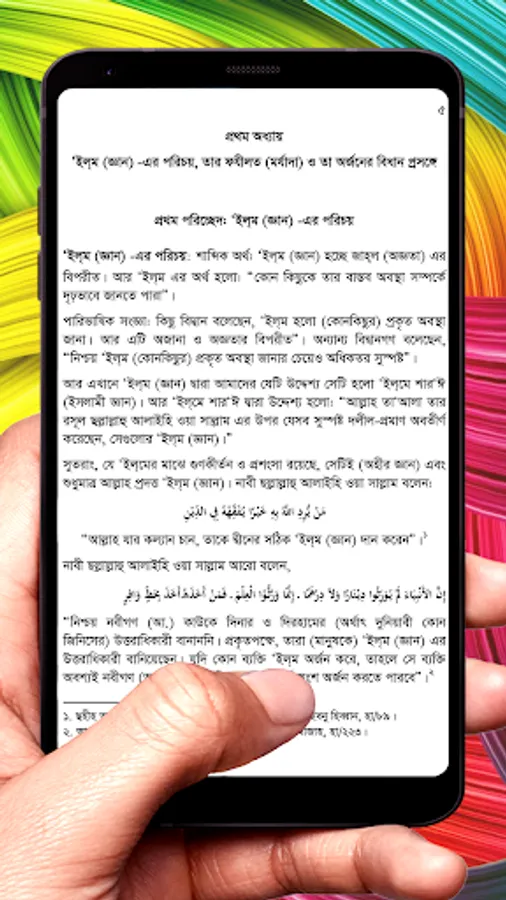 ৫
প্রথম অধ্যায়
‘ইল্ম (জ্ঞান) -এর পরিচয়, তার ফযীলত (মর্যাদা) ও তা অর্জনের বিধান প্রসঙ্গে
প্রথম পরিচ্ছেদ: ‘ইল্ম (জ্ঞান) -এর পরিচয়
‘ইল্ম (জ্ঞান) -এর পরিচয়: শাব্দিক অর্থ: ‘ইল্ম (জ্ঞান) হচ্ছে জাহ্ল (অজ্ঞতা) এর
বিপরীত। আর ‘ইল্ম এর অর্থ হলো: “কোন কিছুকে তার বাস্তব অবস্থা সম্পর্কে
দৃঢ়ভাবে জানতে পারা”।
পারিভাষিক সংজ্ঞা: কিছু বিদ্বান বলেছেন, ‘ইল্ম হলো (কোনকিছুর) প্রকৃত অবস্থা
জানা। আর এটি অজানা ও অজ্ঞতার বিপরীত”। অন্যান্য বিদ্বানগণ বলেছেন,
“নিশ্চয় ‘ইল্ম (কোনকিছুর) প্রকৃত অবস্থা জানার চেয়েও অধিকতর সুস্পষ্ট”।
আর এখানে ‘ইল্ম (জ্ঞান) দ্বারা আমাদের যেটি উদ্দেশ্য সেটি হলো ‘ইল্মে শার‘ঈ
(ইসলামী জ্ঞান)। আর ‘ইল্মে শার‘ঈ দ্বারা উদ্দেশ্য হলো: “আল্লাহ তা‘আলা তার
রসূল ছল্লাল্লাহু আলাইহি ওয়া সাল্লাম এর উপর যেসব সুস্পষ্ট দলীল-প্রমাণ অবতীর্ণ
করেছেন, সেগুলোর ‘ইল্ম (জ্ঞান)।”
সুতরাং, যে ‘ইল্মের মাঝে গুণকীর্তন ও প্রশংসা রয়েছে, সেটিই (অহীর জ্ঞান) এবং
শুধুমাত্র আল্লাহ প্রদত্ত ‘ইল্ম (জ্ঞান)। নাবী ছল্লাল্লাহু আলাইহি ওয়া সাল্লাম বলেন:
مَنْ يُرِدِ اللَّهُ بِهِ خَيْرًا يُفَقِّهْهُ فِي الدِّينِ
“আল্লাহ যার কল্যান চান, তাকে দ্বীনের সঠিক ‘ইল্ম (জ্ঞান) দান করেন”।১
নাবী ছল্লাল্লাহু আলাইহি ওয়া সাল্লাম আরো বলেন,
إِنَّ الْأَنْبِيَاءَ لَمْ يُوَرِّثُوا دِينَارًا وَلاَ دِرْهَمًا . إِنَّمَا وَرَّثُوا الْعِلْمَ . فَمَنْ أَخَذَهُ أَخَذَ بِحَظٍّ وَافِرٍ
“নিশ্চয় নবীগণ (আ.) কাউকে দিনার ও দিরহামের (অর্থাৎ দুনিয়াবী কোন
জিনিসের) উত্তরাধিকারী বানাননি। প্রকৃতপক্ষে, তারা (মানুষকে) ‘ইল্ম (জ্ঞান) এর
উত্তরাধিকারী বানিয়েছেন। যদি কোন ব্যক্তি ‘ইল্ম অর্জন করে, তাহলে সে ব্যক্তি
অবশ্যই নবীগণ অর্জন করতে পারবে”।২
১. ছহীহ ইবনু হিব্বান, হা/৮৯।
২. হা/২২৩।